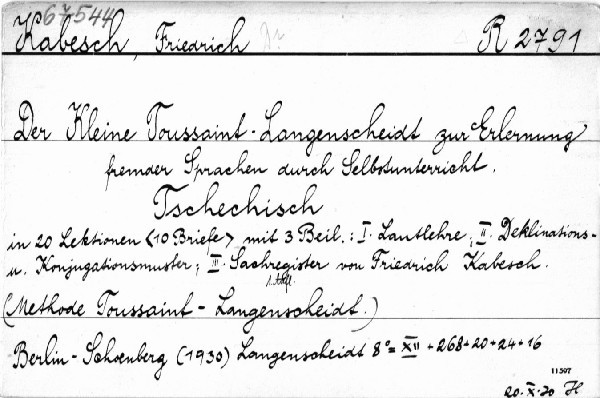 67544
Kabesch, Friedrich R 2791
Der Kleine Toussaint-Langenscheidt zur Erlernung
fremder Sprachen durch Selbstunterricht.
Tschechisch
in 20 Lektionen <10 Briefe> mit 3 Beil.: I. Lautlehre, II. Deklinations-
u. Konjugationsmuster; III. Sachregister von Friedrich Kabesch.
1. Aufl.
(Methode Toussaint-Langenscheidt.)
Berlin-Schoenberg (1930) Langenscheidt 8°= XII + 268+20+24+16
11507
20.X.30 H